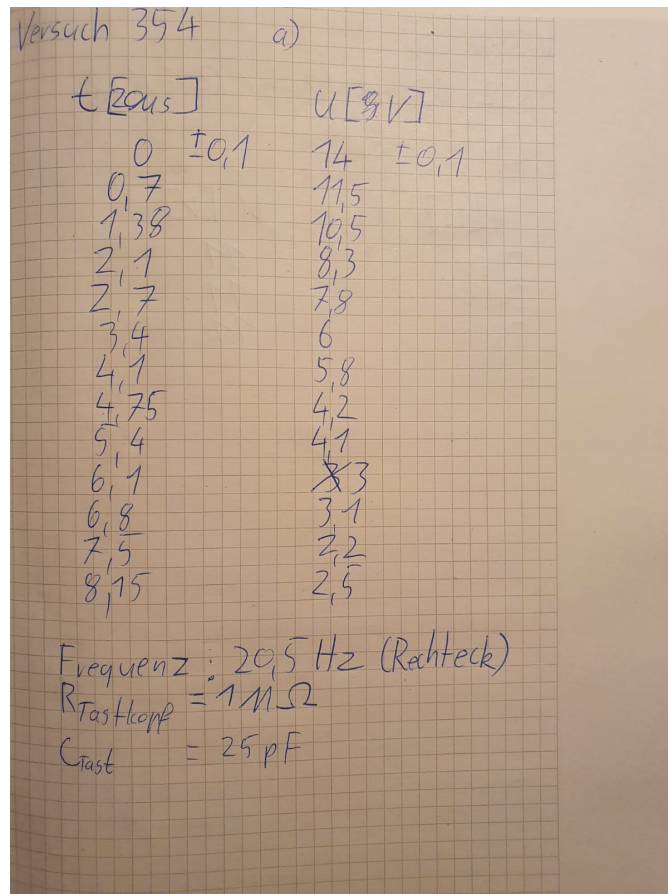 Versuch 354 a)
t [20us] U [3V]
0 ±0,1 14 ±0,1
0,7 11,5
1,38 10,5
2,1 8,3
2,7 7,8
3,4 6
4,1 5,8
4,75 4,2
5,4 4,1
6,1 3
6,8 3,1
7,5 2,2
8,15 2,5
Frequenz : 20,5 Hz (Rechteck)
R Tastkopf = 1 MΩ
C Tast = 25 pF